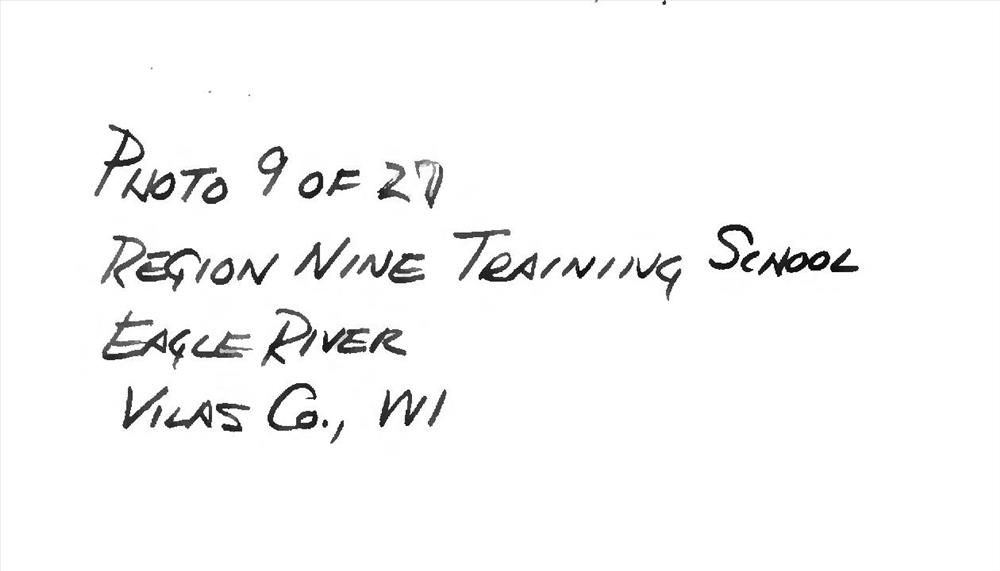 PHOTO 9 OF 27
REGION NINE TRAINING SCHOOL
EAGLE RIVER
VILAS CO., WI